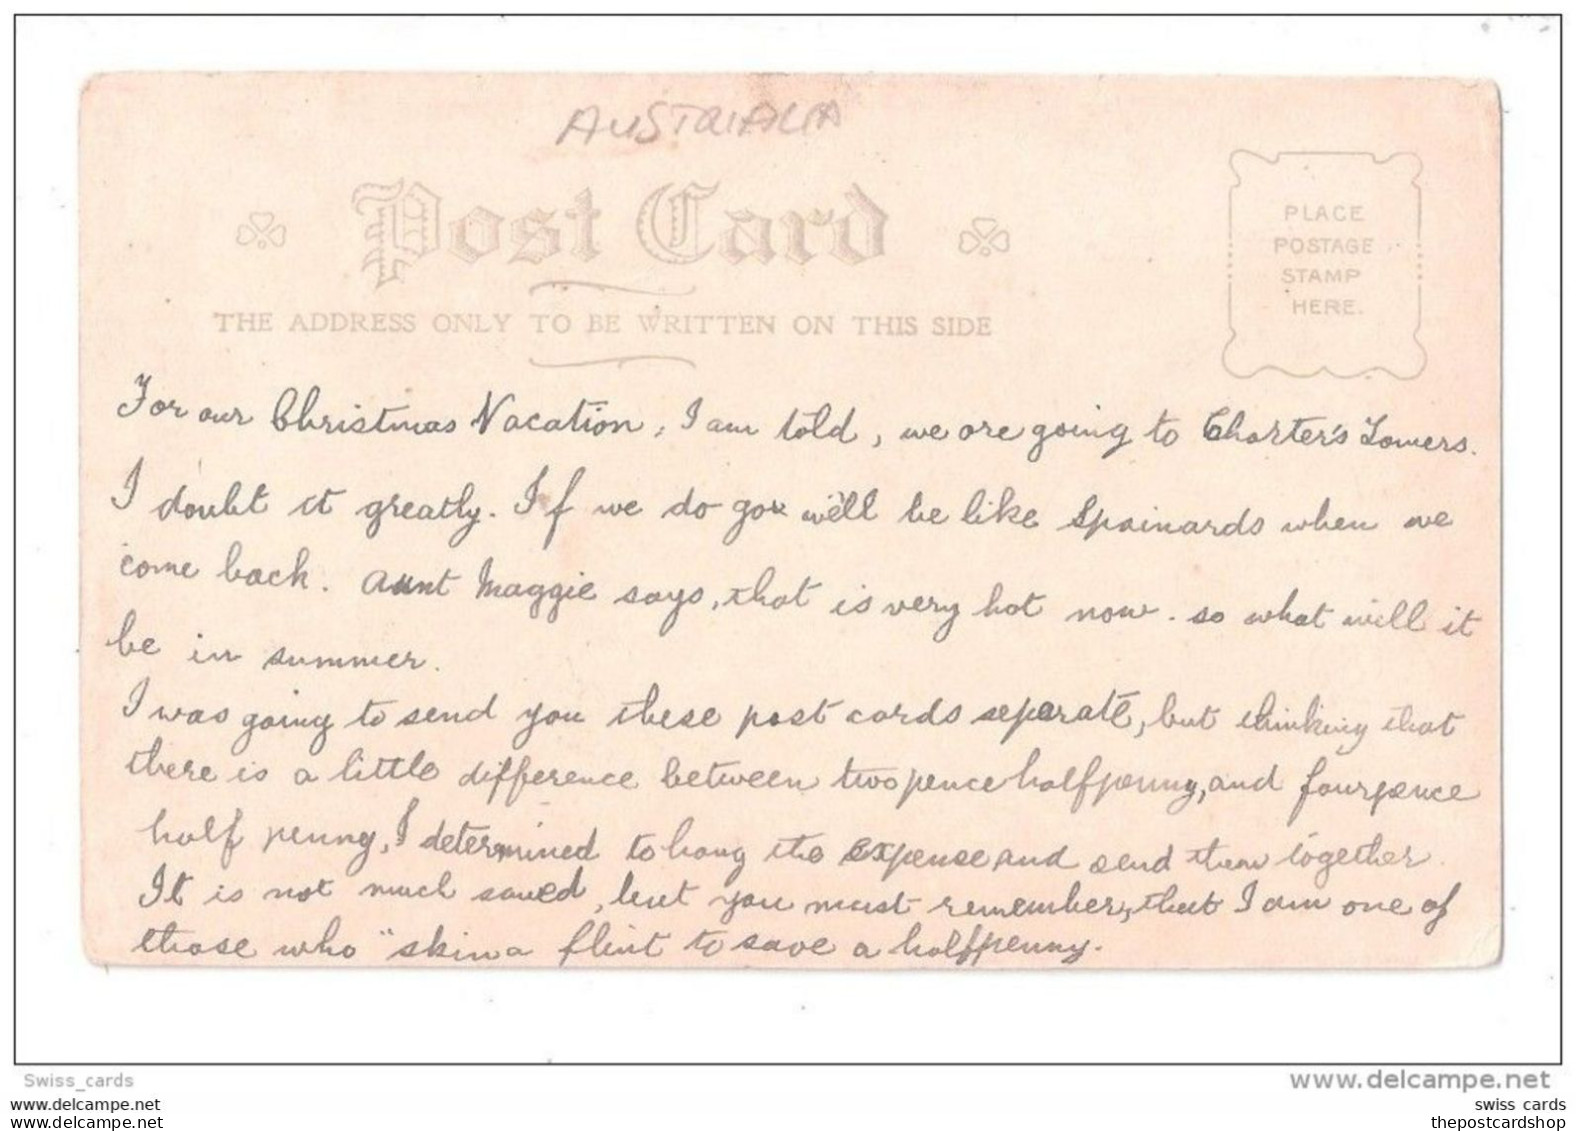 AUSTRALIA
Post Card
PLACE
POSTAGE
STAMP
HERE.
THE ADDRESS ONLY TO BE WRITTEN ON THIS SIDE
For our Christmas Vacation, I am told, we are going to Charter's Towers.
I doubt it greatly. If we do go we'll be like Spainards when we
come back. Aunt Maggie says, that is very hot now. so what will it
be in summer.
I was going to send you these post cards separate, but thinking that
there is a little difference between twopence halfpenny, and fourpence
half penny, I determined to hang the expense and send them together.
It is not much saved, but you must remember, that I am one of
those who "skin a flint to save a halfpenny.
Swiss_cards
www.delcampe.net
swiss cards
www.delcampe.net
swiss cards
www.delcampe.net
thepostcardshop